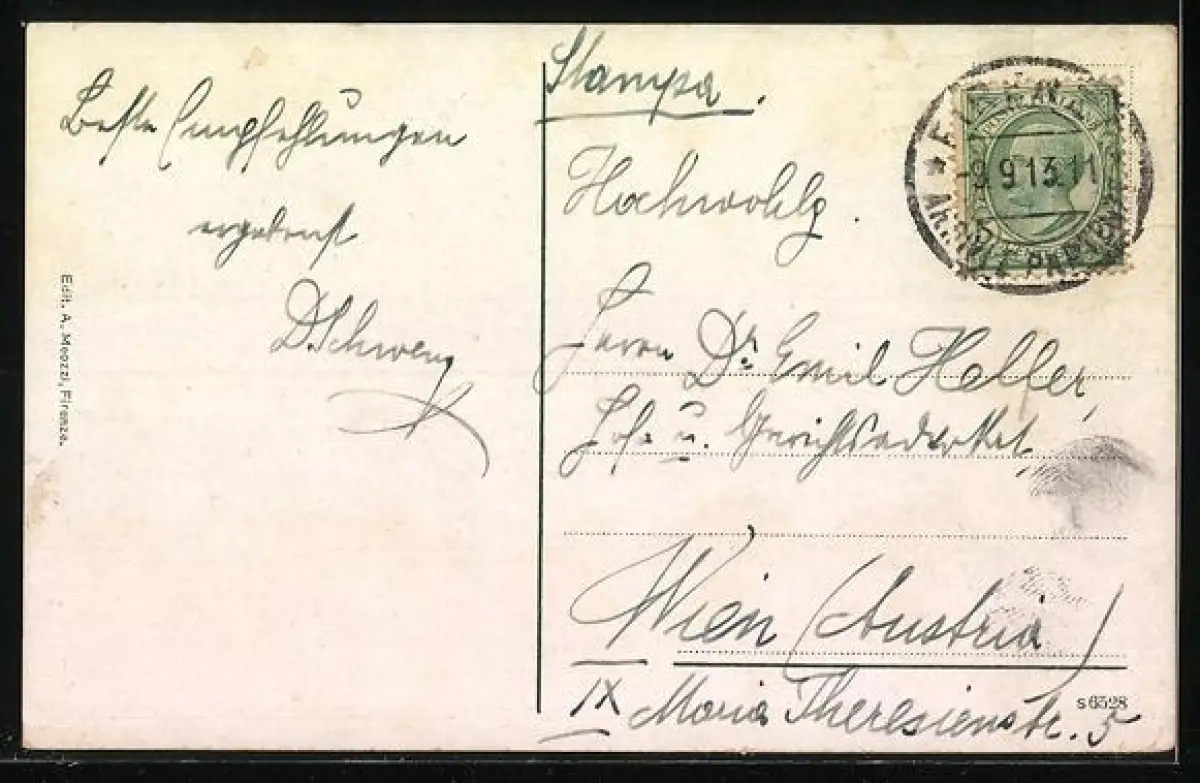 Beste Empfehlungen
ergebenst
D. Schwenz
Edit. A. Meozzi, Firenze.
Stampa.
Hochwohlg.
Herrn Dr. Emil Heller,
Hof- u. Gerichtsadvokat,
Wien (Austria)
IX Maria Theresienstr. 5
S 6528
-9.9.13.11